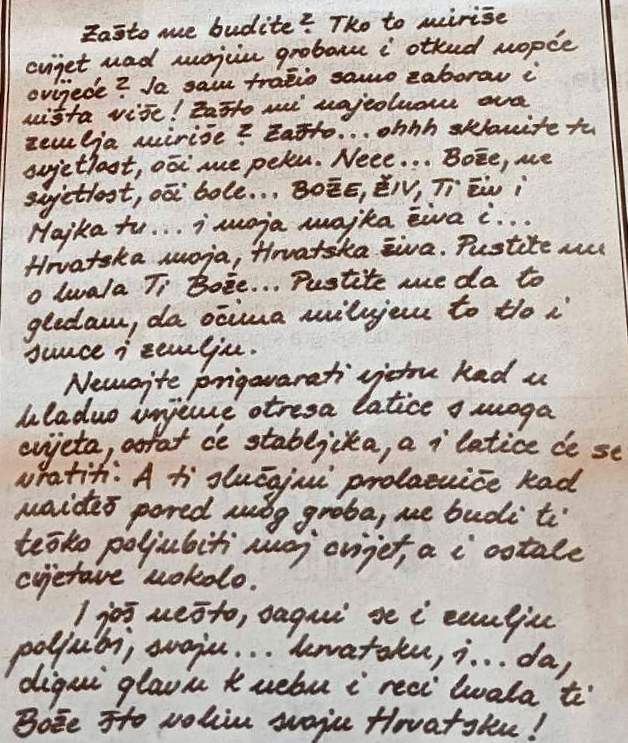 Zašto me budite? Tko to miriše
cvijet nad mojim grobom i otkud uopće
cvijeće? Ja sam tražio samo zaborav i
ništa više! Zašto mi najednom ova
zemlja miriše? Zašto... ohhh sklonite tu
svjetlost, oči me peku. Neee... Bože, ne
svjetlost, oči bole... BOŽE, ŽIV, Ti živ i
Majka tu... i moja majka živa i...
Hrvatska moja, Hrvatska živa. Pustite me
o hvala Ti Bože... Pustite me da to
gledam, da očima milujem to tlo i
sunce i zemlju.
Nemojte prigovarati vjetru kad u
hladno vrijeme otresa latice s moga
cvijeta, ostat će stabljika, a i latice će se
vratiti. A ti slučajni prolazniče kad
naiđeš pored mog groba, ne budi ti
teško poljubiti moj cvijet, a i ostale
cvjetove uokolo.
I još nešto, sagni se i zemlju
poljubi, svoju... hrvatsku, i... da,
digni glavu k nebu i reci hvala ti
Bože što volim svoju Hrvatsku!